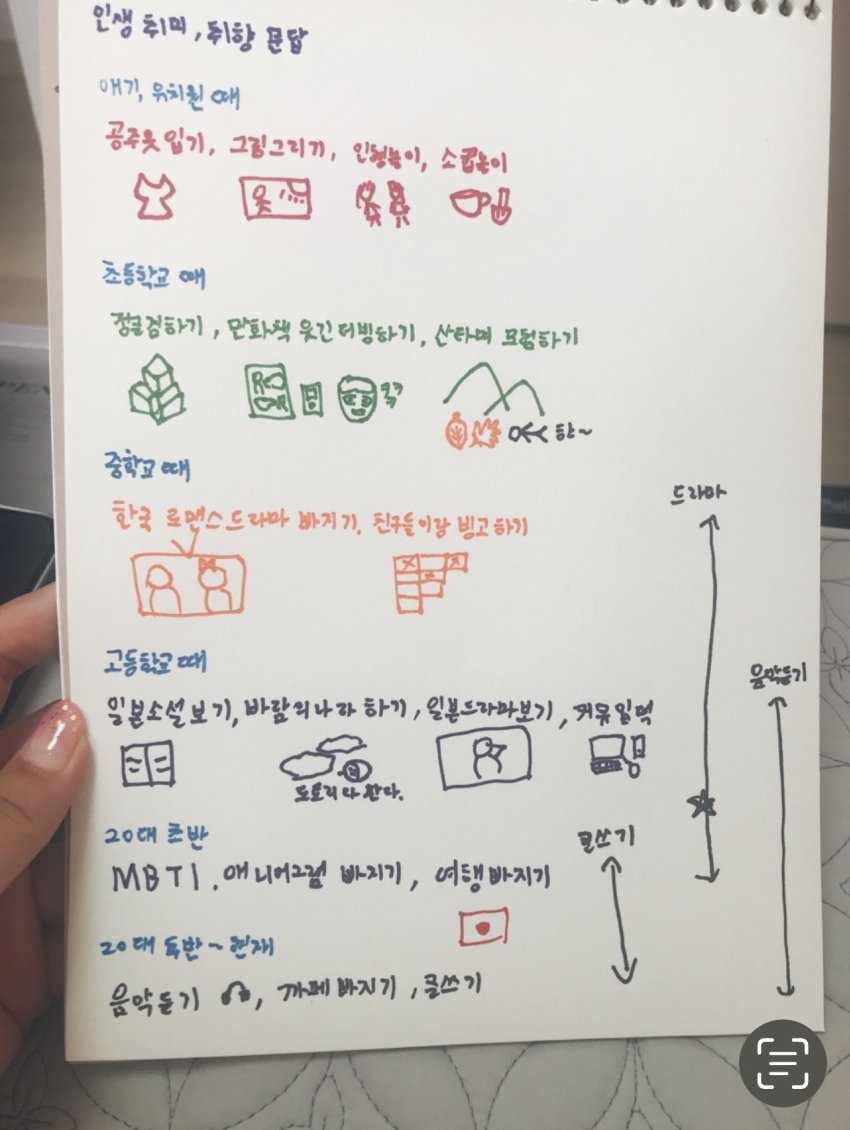 인생 취미, 취향 문답
애기, 유치원 때
공주옷 입기, 그림그리기, 인형놀이, 소꿉놀이
초등학교 때
정글짐하기, 만화책 웃긴더빙하기, 산타며 모험하기
킥킥
핫~
중학교 때
드라마
한국 로맨스드라마 빠지기, 친구들이랑 빙고하기
고등학교 때
음악듣기
일본소설보기, 바람의나라 하기, 일본드라마보기, 커뮤입덕
넥
도토리다 왼다.
20대 초반
글쓰기
MBTI, 애니어그램 빠지기, 여행빠지기
20대 후반~현재
음악듣기, 까페빠지기, 글쓰기